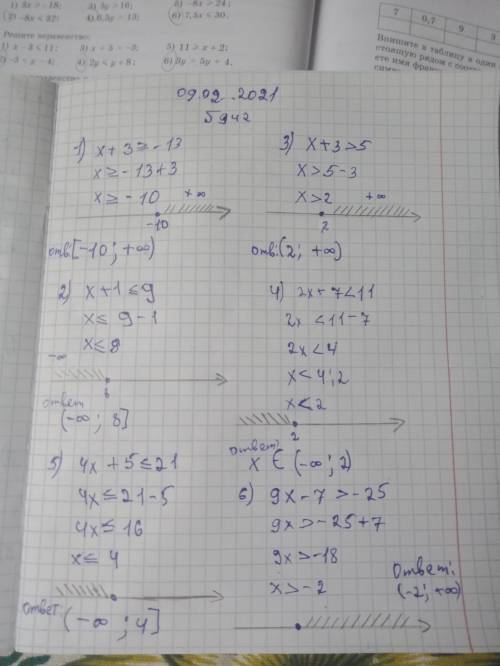 1) 3x > -18;
3) 5y > 16;
5) -8x > 24;
2) -8x < 32;
4) 6,5y > 13;
6) 7,5x < 30.
Решите неравенство:
1) x - 3 < 11;
3) x + 5 > -3;
5) 11 > x + 2;
4) 2y < y + 8;
6) 3y > 5y + 4.
7
0,7
9
Впишите в таблицу в один
стоящую рядом с соот
ете имя фран
09.02.2021
Б942
1) x + 3 ≥ -13
x ≥ -13 + 3
x ≥ -10
+∞
-10
отв: [-10; +∞)
2) x + 1 ≤ 9
x ≤ 9 - 1
x ≤ 8
-∞
8
ответ
(-∞; 8]
3) x + 3 > 5
x > 5 - 3
x > 2
+∞
2
отв: (2; +∞)
4) 2x + 7 < 11
2x < 11 - 7
2x < 4
x < 4:2
x < 2
2
ответ:
x ∈ (-∞; 2)
5) 4x + 5 ≤ 21
4x ≤ 21 - 5
4x ≤ 16
x ≤ 4
ответ
(-∞; 4]
6) 9x - 7 > -25
9x > -25 + 7
9x > -18
x > -2
Ответ:
(-2; +∞)